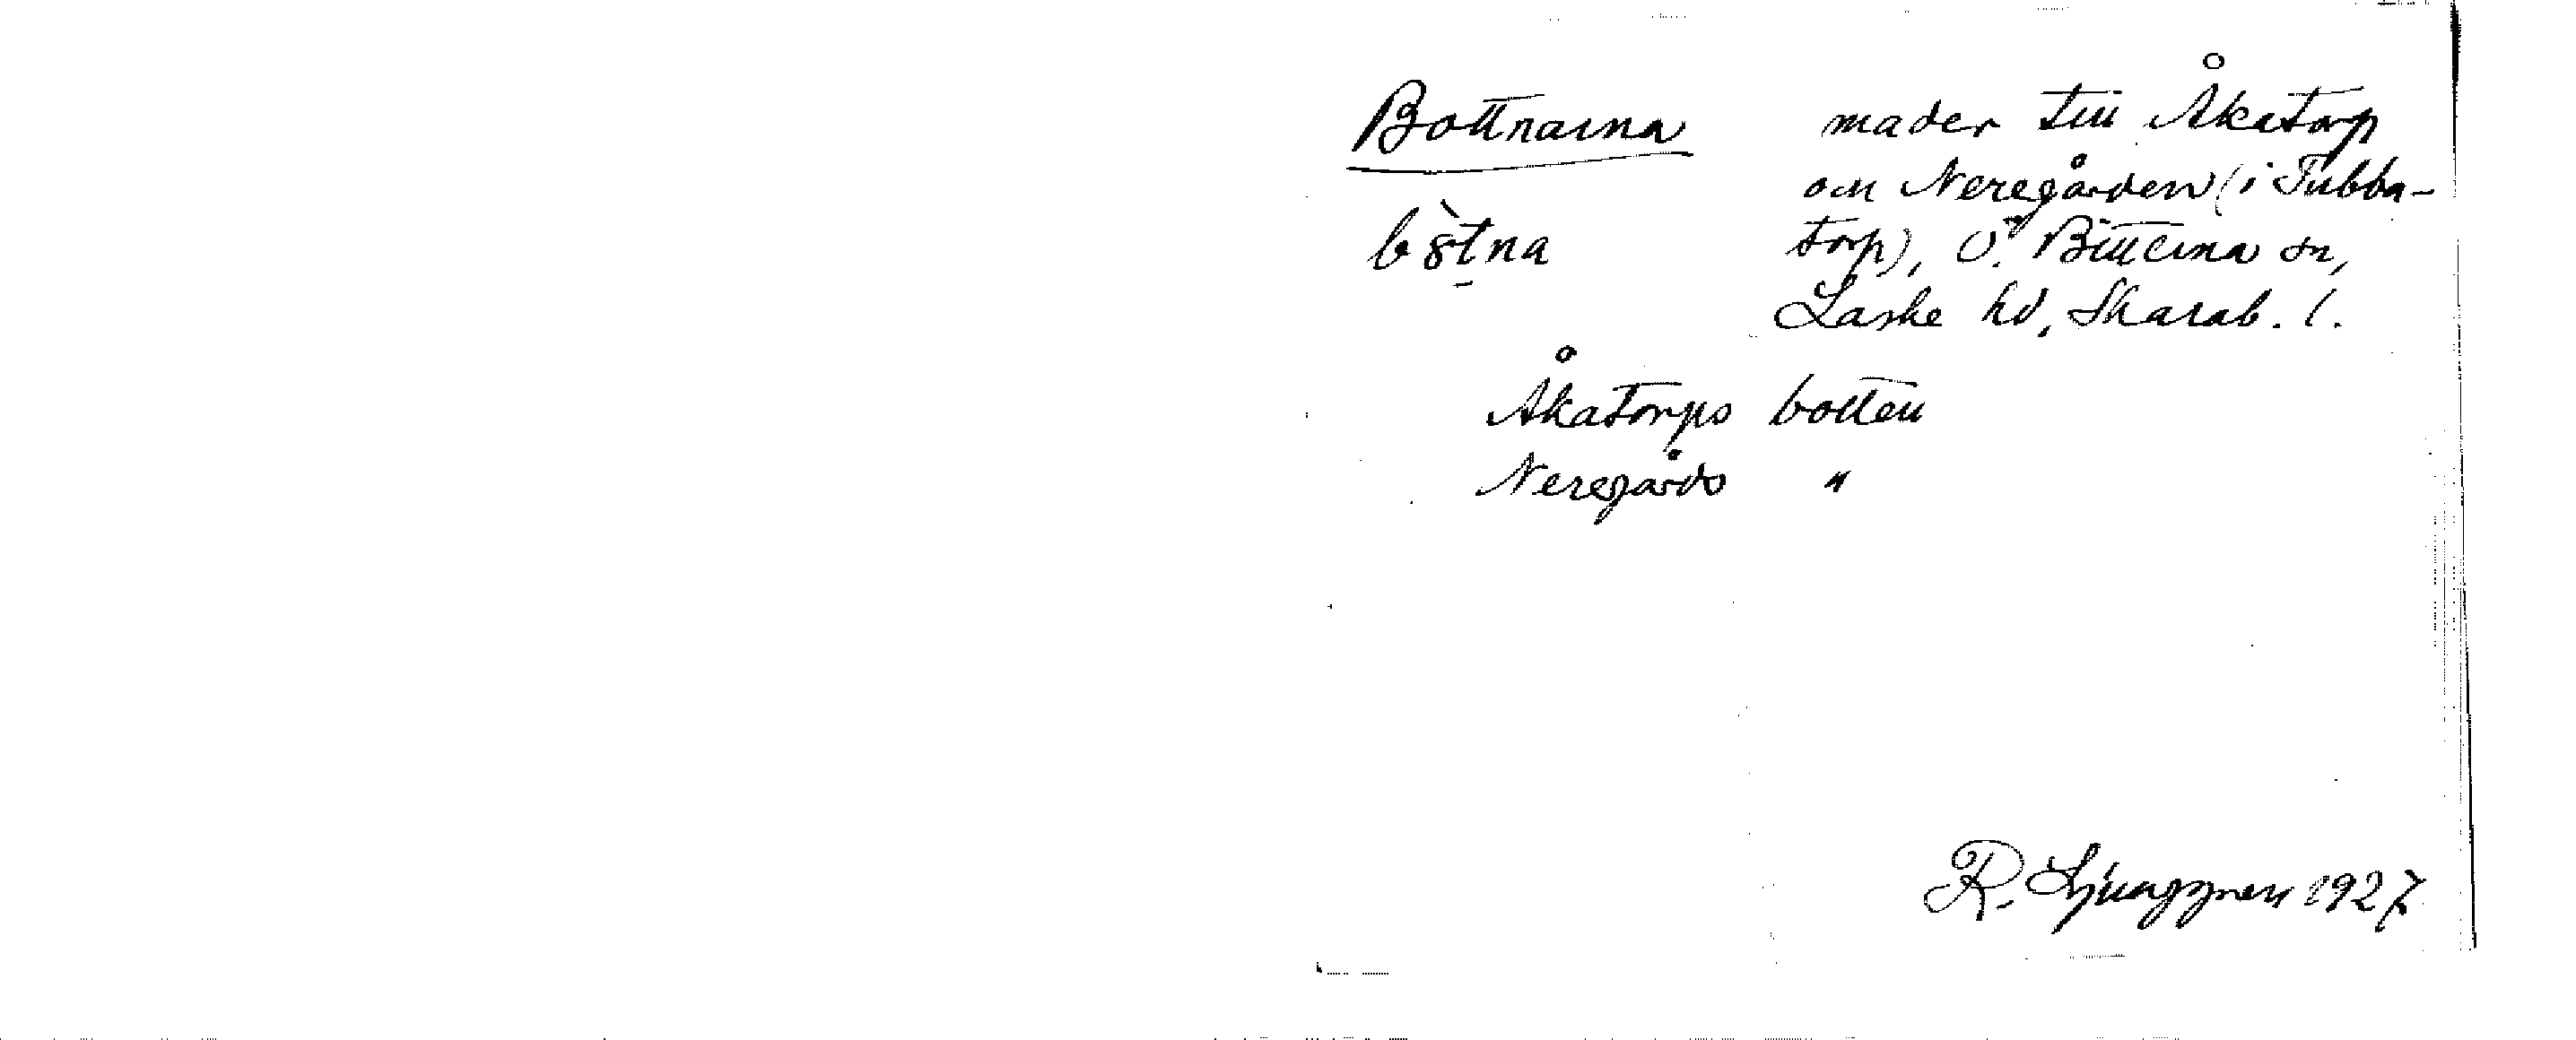 Bottnarna mader till Åkatorp
och Neregården (i Tubba-
bo᷃tna torp), Ö. Bitterna sn,
Laske hd, Skarab. l.
Åkatorps botten
Neregårds "
R. Ljunggren 1927